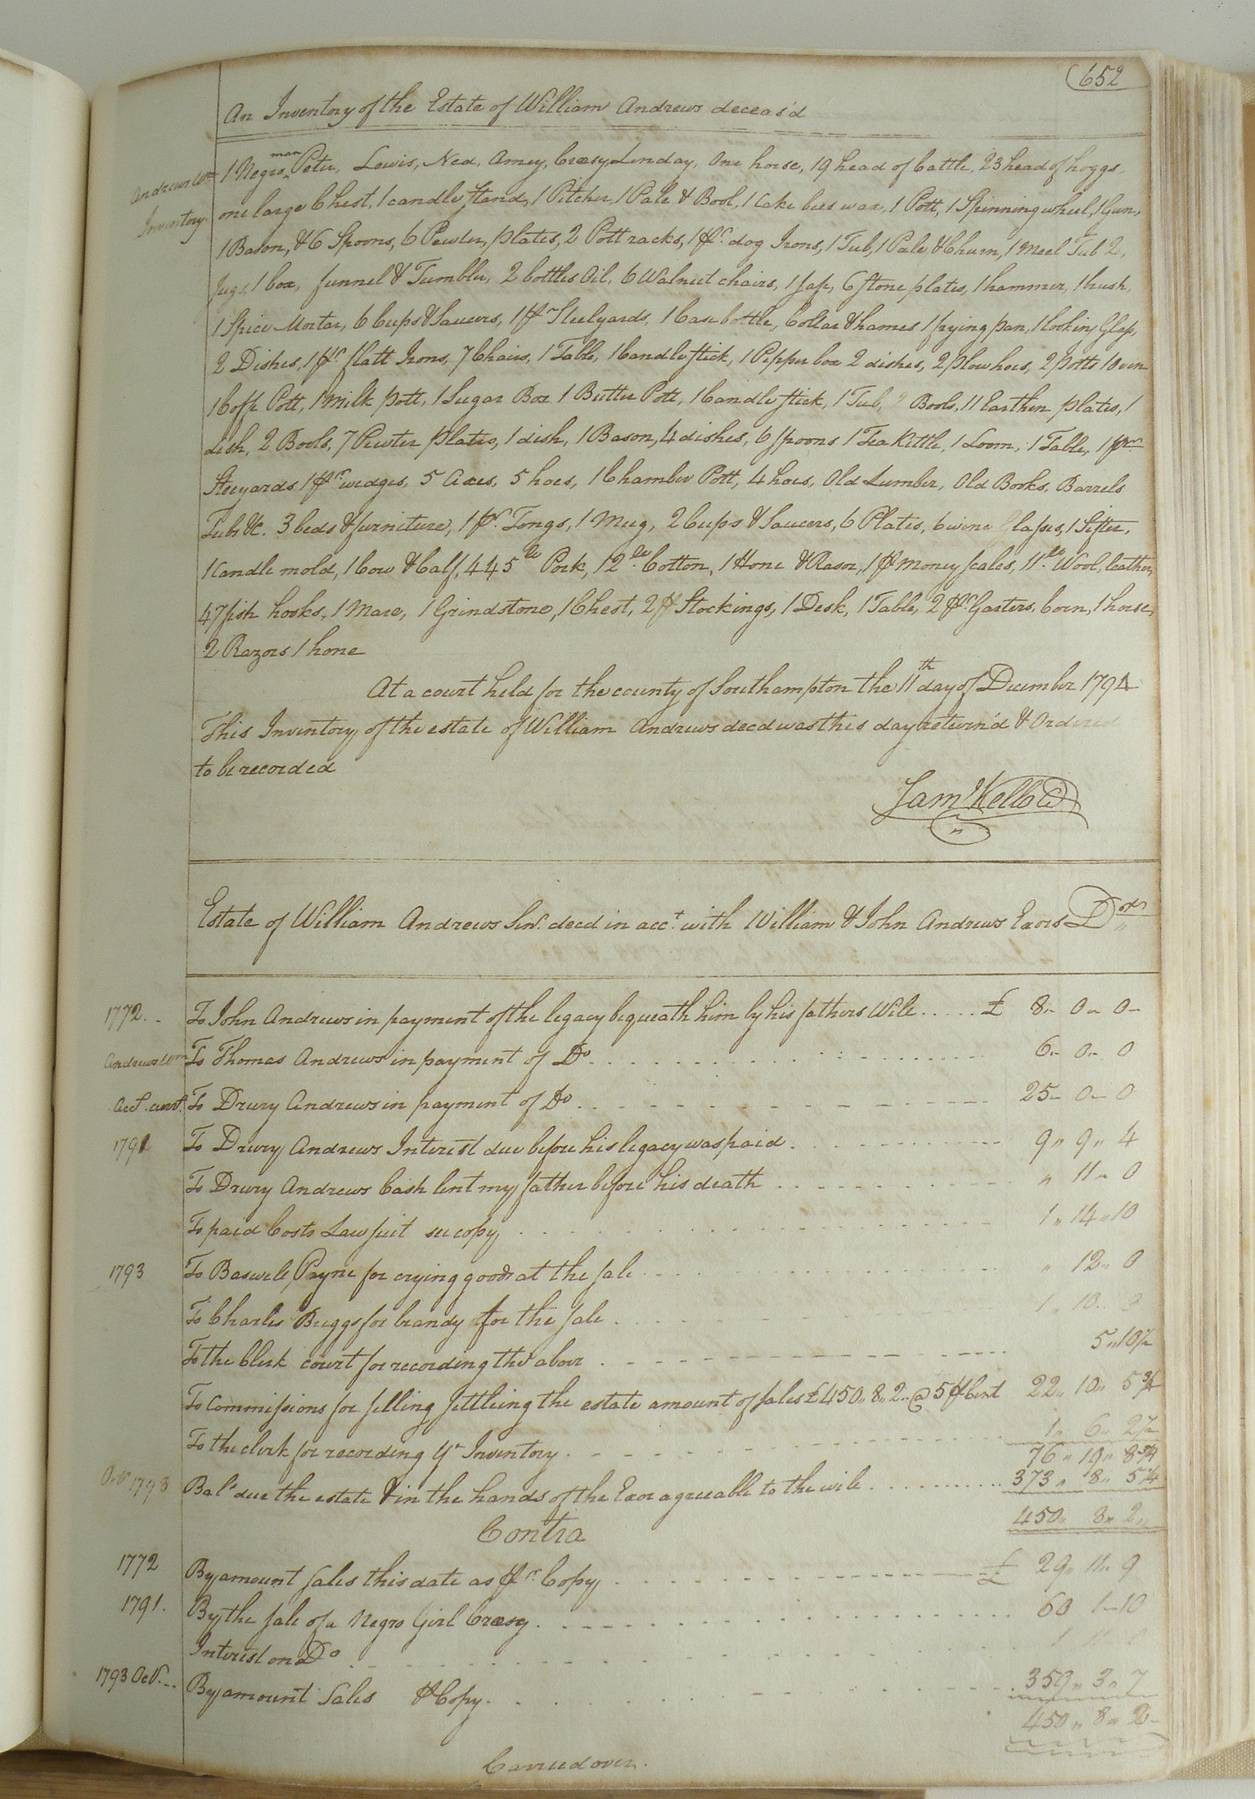 652
An Inventory of the Estate of William Andrews deceas'd
Andrews Wm
Inventory.
1 Negro man Peter, Lewis, Ned, Amey, Creasy Linday, One horse, 19 head of Cattle, 23 head of hoggs,
one large Chest, 1 candle stand, 1 Pitcher, 1 Pale & Bool, 1 Cake bees wax, 1 Pott, 1 Spinning wheel, 1 Gun,
1 Bason, & 6 Spoons, 6 Pewter, plates, 2 Pott racks, 1 pr. dog Irons, 1 Tub, 1 Pale & Churn, 1 Meel Tub 2,
Jugs, 1 box, funnel & Tumbler, 2 bottles Oil, 6 Walnut chairs, 1 Jap, 6 stone plates, 1 hammer, 1 brush,
1 Spice Mortar, 6 Cups & Saucers, 1 pr Steelyards, 1 Case bottle, Collar & hames 1 frying pan, 1 looking Glass,
2 Dishes, 1 pr flatt Irons, 7 Chairs, 1 Table, 1 Candlestick, 1 Pepper box 2 dishes, 2 plow hoes, 2 Potts 1 oven
1 Coffe Pott, 1 Milk pott, 1 Sugar Box 1 Butter Pott, 1 Candlestick, 1 Tub, 2 Bools, 11 Earthen plates, 1
dish, 2 Bools, 7 Pewter plates, 1 dish, 1 Bason, 4 dishes, 6 spoons 1 Tea Kittle, 1 Loom, 1 Table, 1 pr
Steeyards 1 pr wedges, 5 Axes, 5 hoes, 1 Chamber Pott, 4 hoes, Old Lumber, Old Books, Barrels
Tubs &c. 3 beds & furniture, 1 pr. Tongs, 1 Mug, 2 Cups & Saucers, 6 Plates, 6 wine Glasses, 1 Sifter,
1 Candle mold, 1 Cow & Calf, 445 lb Pork, 12 lb Cotton, 1 Hone & Rasor, 1 pr money scales, 11 lb Wool, leather,
47 fish hooks, 1 Mare, 1 Grindstone, 1 Chest, 2 pr Stockings, 1 Desk, 1 Table, 2 pr Garters, Corn, 1 horse,
2 Razors 1 hone
At a court held for the county of Southampton the 11th day of December 1794
This Inventory of the estate of William Andrews decd was this day return'd & Ordered
to be recorded
Saml Kello Cl
Estate of William Andrews Senr. decd in acct. with William & John Andrews Exors Dr
1772 To John Andrews in payment of the legacy bequeath him by his fathers Will £ 8 - 0 - 0
Andrews Wm To Thomas Andrews in payment of Do 6 - 0 - 0
Acct. curt. To Drury Andrews in payment of Do 25 - 0 - 0
1791 To Drury Andrews Interest due before his legacy was paid 9 " 9 " 4
To Drury Andrews Cash lent my father before his death " 11 - 0
To paid Costs Lawsuit su copy 1 " 14 " 10
1793 To Baswell Payne for crying goods at the sale " 12 - 0
To Charles Briggs for brandy for the sale 1 " 10
To the Clerk court for recording the above 5 " 10½
To Commissions for selling settleing the estate amount of sales £450 " 8 " 2 @ 5 pCent 22 " 10 " 5¾
To the clerk for recording yr Inventory 1 " 6 " 2½
76 " 19 " 8¾
Octr 1793 Bale due the estate & in the hands of the Exor agreeable to the will 373 " 8 " 5¼
450 " 8 " 2
Contra
1772 By amount sales this date as pr Copy £ 29 " 11 " 9
1791. By the sale of a Negro Girl Creasy 60 1 - 10
Interest on Do
1793 Octr By amount Sales p Copy 359 " 3 " 7
450 " 8 " 2
Carried over.